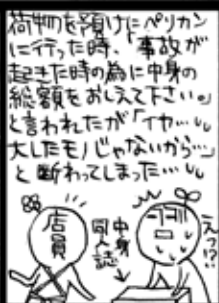 荷物を預けにペリカン
に行った時、「事故が
起きた時の為に中身の
総額をおしえて下さい。」
と言われたが「イヤ…
大したモノじゃないから…」
と断わってしまった…
店員
中身
同人誌
えっ!?